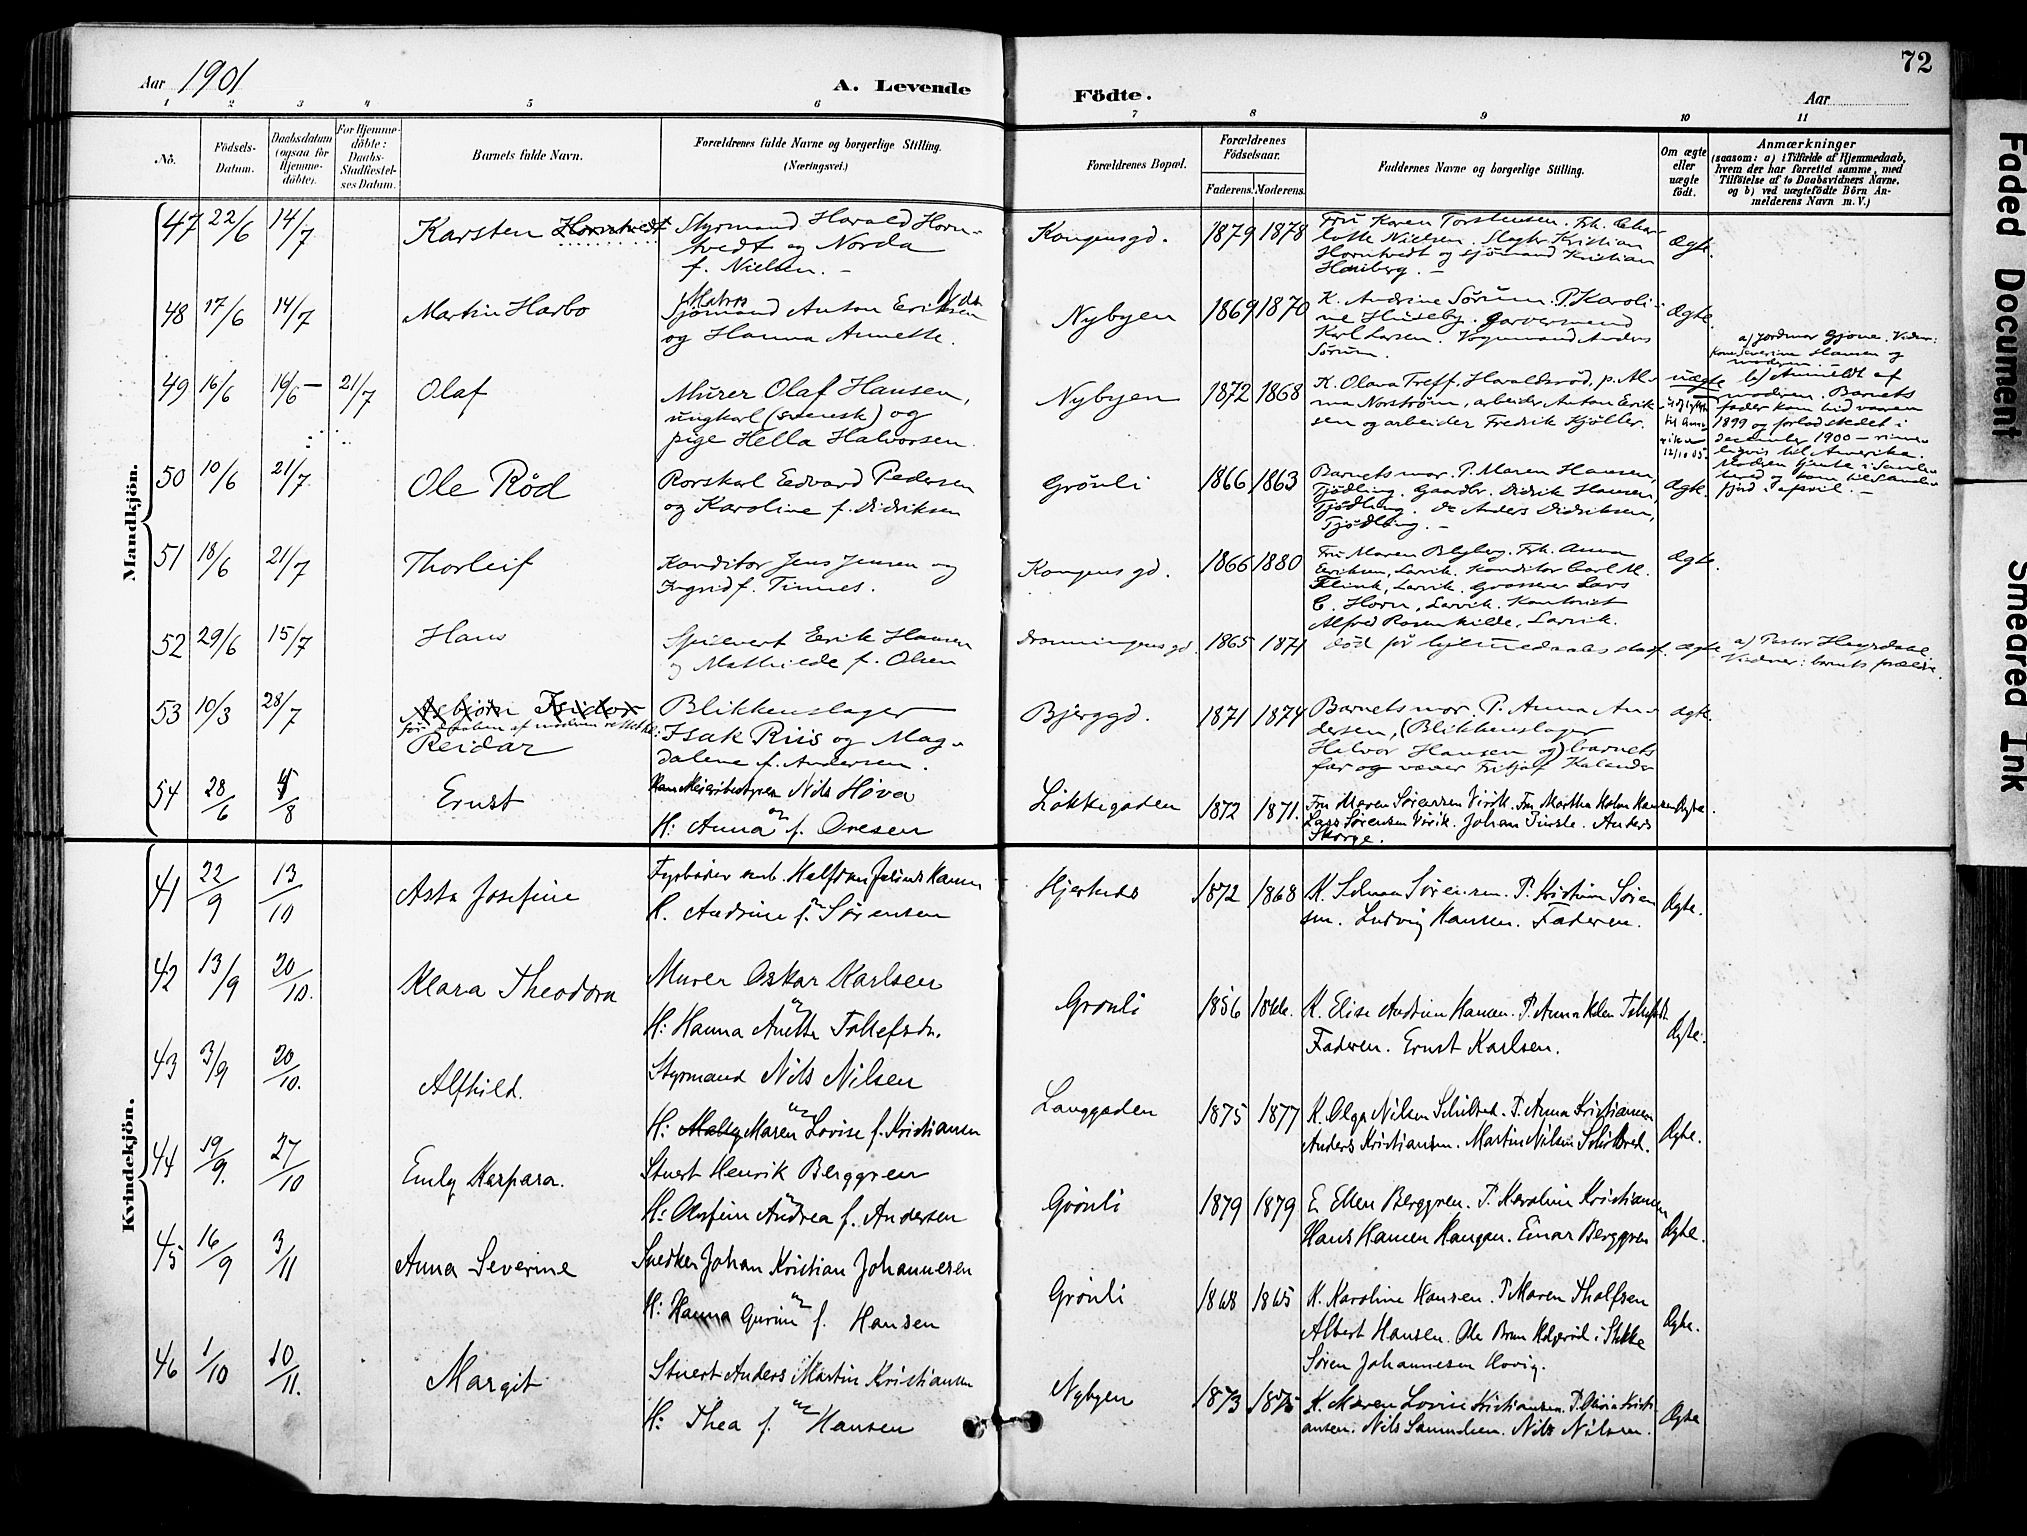 72
Aar 1901
A. Levende
Födte.
Aar
1 2 3 4 5 6 7 8 9 10 11
No.
Födsels-Datum.
Daabsdatum (ogsaa for Hjemme-döbte).
For Hjemme-döbte: Daabs-Stadfæstel-ses Datum.
Barnets fulde Navn.
Forældrenes fulde Navne og borgerlige Stilling.
(Næringsvei.)
Forældrenes Bopæl.
Forældrenes Födselsaar.
Faderens. Moderens.
Faddernes Navne og borgerlige Stilling.
Om ægte eller uægte födt.
Anmærkninger
(saasom: a) i Tilfælde af Hjemmedaab,
hvem der har forrettet samme, med
Tilföielse af to Daabsvidners Navne,
og b) ved uægtefödte Börn An-
melderens Navn m. V.)
Mandkjön.
47 22/6 14/7 Karsten Horntvedt
Styrmand Harald Horn-
tvedt og Norda
f. Nielsen. –
Kongensgd. 1879 1878
Fru Karen Torstensen. Frk. Char-
lotte Nielsen. Slagter Kristian
Horntvedt og sjömand Kristian
Hauberg. –
Ægte.
48 17/6 14/7 Martin Harbo
Matros
Sjömand Anton Eriksen
og Hanna Annette.
Nybyen 1869 1870
K. Andrine Sørum. P. Karoli-
ne Huseby. Garversvend
Karl Larsen. Vognmand Anders
Sørum.
Ægte.
49 16/6 16/6 – 21/7 Olaf
Murer Olaf Hansen,
ungkarl (svensk) og
pige Hella Halvorsen.
Nybyen 1872 1868
K. Olava Treff, Haraldsrød, p. Al-
ma Norstrøm, arbeider Anton Erik-
sen og arbeider Fredrik Kjöller.
uægte
12/10 05
a) jordmor Gjone. Vidner:
Kone Severine Hansen og
moderen. –
b) Anmeldt af
moderen. Barnets
fader kom hid vaaren
1899 og forlod stedet i
December 1900 –
til Amerika.
50 10/6 21/7 Ole Röd
Rorskarl Edvard Pedersen
og Karoline f. Didriksen
Grönli 1866 1863
Barnets mor. P. Maren Hansen,
Tjödling. Gaardbr. Didrik Hansen,
Tjödling. Do Anders Didriksen,
Tjödling. –
Ægte.
51 18/6 21/7 Thorleif
Konditor Jens Jensen og
Ingrid f. Tinnes.
Kongensgd. 1866 1880
Fru Maren Blyberg. Frk. Anna
Eriksen, Larvik. Konditor Carl M.
Flink, Larvik. Grosserer Lars
C. Horn, Larvik. Kontorist
Alfred Rosenkilde, Larvik.
Ægte.
52 29/6 15/7 Hans
Erik Hansen
og Mathilde f. Olsen
Dronningensgd. 1865 1871
død før hjemmedaabs stadf. Ægte
a) Pastor
Vidner: barnets forældre
53 10/3 28/7 Asbjörn Isidor
Reidar
Blikkenslager
Isak Riis og Mag-
dalene f. Andersen.
Bjerggd. 1871 1874
Barnets mor. P. Anna An-
dersen, (Blikkenslager
Halvor Hansen og) barnets
far og væver Fritjof Kalander
Ægte.
54 28/6 4/8 Ernst
Nils Höva
og
H: Anna f. Oresen
Lökkegaden 1872 1871.
Fru Maren Sørensen Virik. Fru Martha Holm Hansen
Lars Sørensen Virik. Johan Anders
Skorge.
Ægte.
Kvindekjön.
41 22/9 13/10 Asta Josefine
Fyrbøder Halfdan Julius Hansen
H. Andrine f. Sørensen
Hjertnes 1872 1868
K. Selma Sørensen. P. Kristine Søren
sen. Ludvig Hansen. Faderen.
Ægte.
42 13/9 20/10. Klara Theodora
Murer Oskar Karlsen
H: Hanna Anette Tollefsdn.
Grønli 1856
K. Elise Andrine Hansen. P. Anna Helen
Faderen. Ernst Karlsen.
Ægte.
43 3/9 20/10. Alfhild.
Styrmand Nils Nilsen
H: Maren Lovise f. Kristiansen
Langgaden 1875 1877
K. Olga Nilsen. P. Anna Kristiansen
Anders Kristiansen. Martin Nilsen
Ægte.
44 19/9. 27/10 Emly Kaspara.
Stuert Henrik Berggren
H: Andrea f. Andersen
Grönli 1879 1879
E. Ellen Berggren. P. Karoline Kristiansen
Hans Hansen Haugan. Einar Berggren
Ægte.
45 16/9 3/11 Anna Severine
Snedker Johan Kristian Johannesen
H: Hanna Gurine f. Hansen
Grönli 1868 1865
K. Karoline Hansen. P. Maren Tholfsen
Albert Hansen. Ole Brun i Stokke
Søren Johannesen Hovig.
Ægte.
46 1/10 10/11. Margit
Stuert Anders Martin Kristiansen
H: Thea f. Hansen
Nybyen 1873 1875
K. Maren Lovise Kristiansen. P. Olivia Kristi
ansen. Nils Samuelsen. Nils Nilsen.
Ægte
Faded Document
Smeared Ink